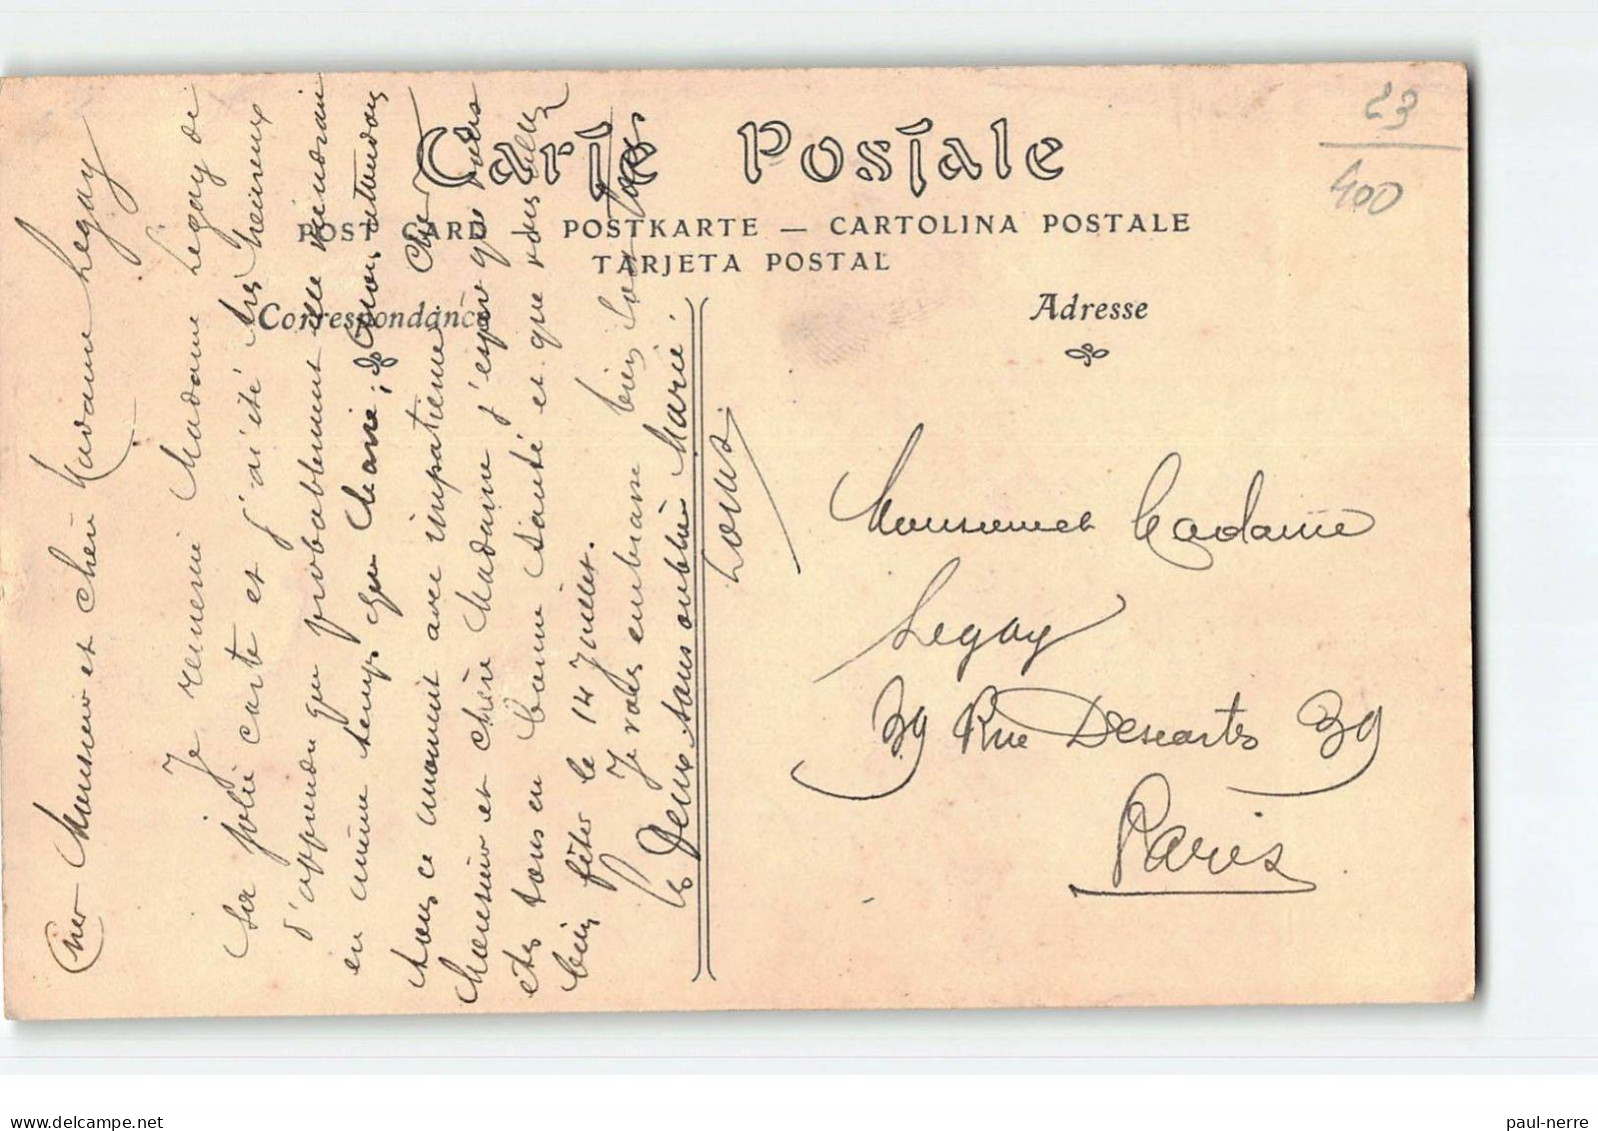 Carte Postale
POST CARD — POSTKARTE — CARTOLINA POSTALE
TARJETA POSTAL
Correspondance
Adresse
23
400
Cher Monsieur et chère Madame Legay
Je remercie Madame Legay de
sa jolie carte et j'ai été très heureux
d'apprendre que probablement elle viendrait
en même temps que Marie; nous attendons
tous ce moment avec impatience. Cher
Monsieur et chère Madame j'espère que vous
êtes tous en bonne santé et que vous allez
bien fêter le 14 Juillet.
Je vous embrasse bien fort tous
les Deux sans oublier Marie.
Louis
Monsieur et Madame
Legay
39 Rue Descartes 39
Paris
paul-nerre